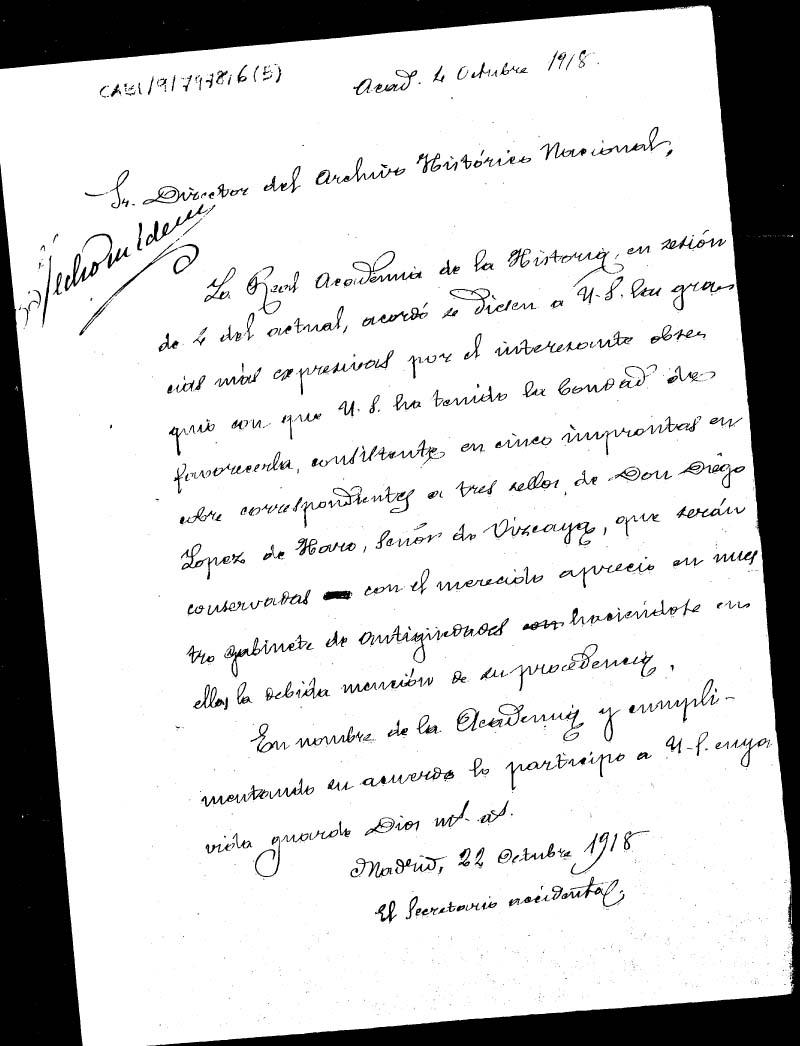 CABI/9/7978/6(5)
Acad. 4 Octubre 1918.
Sr. Director del Archivo Histórico Nacional,
Fecho en idem
La Real Academia de la Historia, en sesión
de 4 del actual, acordó se diesen a U.S. las gra-
cias más expresivas por el interesante obse-
quio con que U.S. ha tenido la bondad de
favorecerla, consistente en cinco improntas en
cobre correspondientes a tres sellos de Don Diego
Lopez de Haro, Señor de Vizcaya, que serán
conservadas con el merecido aprecio en nues
tro gabinete de antigüedades con haciéndose en
ellas la debida mención de su procedencia.
En nombre de la Academia y cumpli-
mentando su acuerdo lo participo a U.S. cuya
vida guarde Dios ms. as.
Madrid, 22 Octubre 1918
El Secretario accidental,